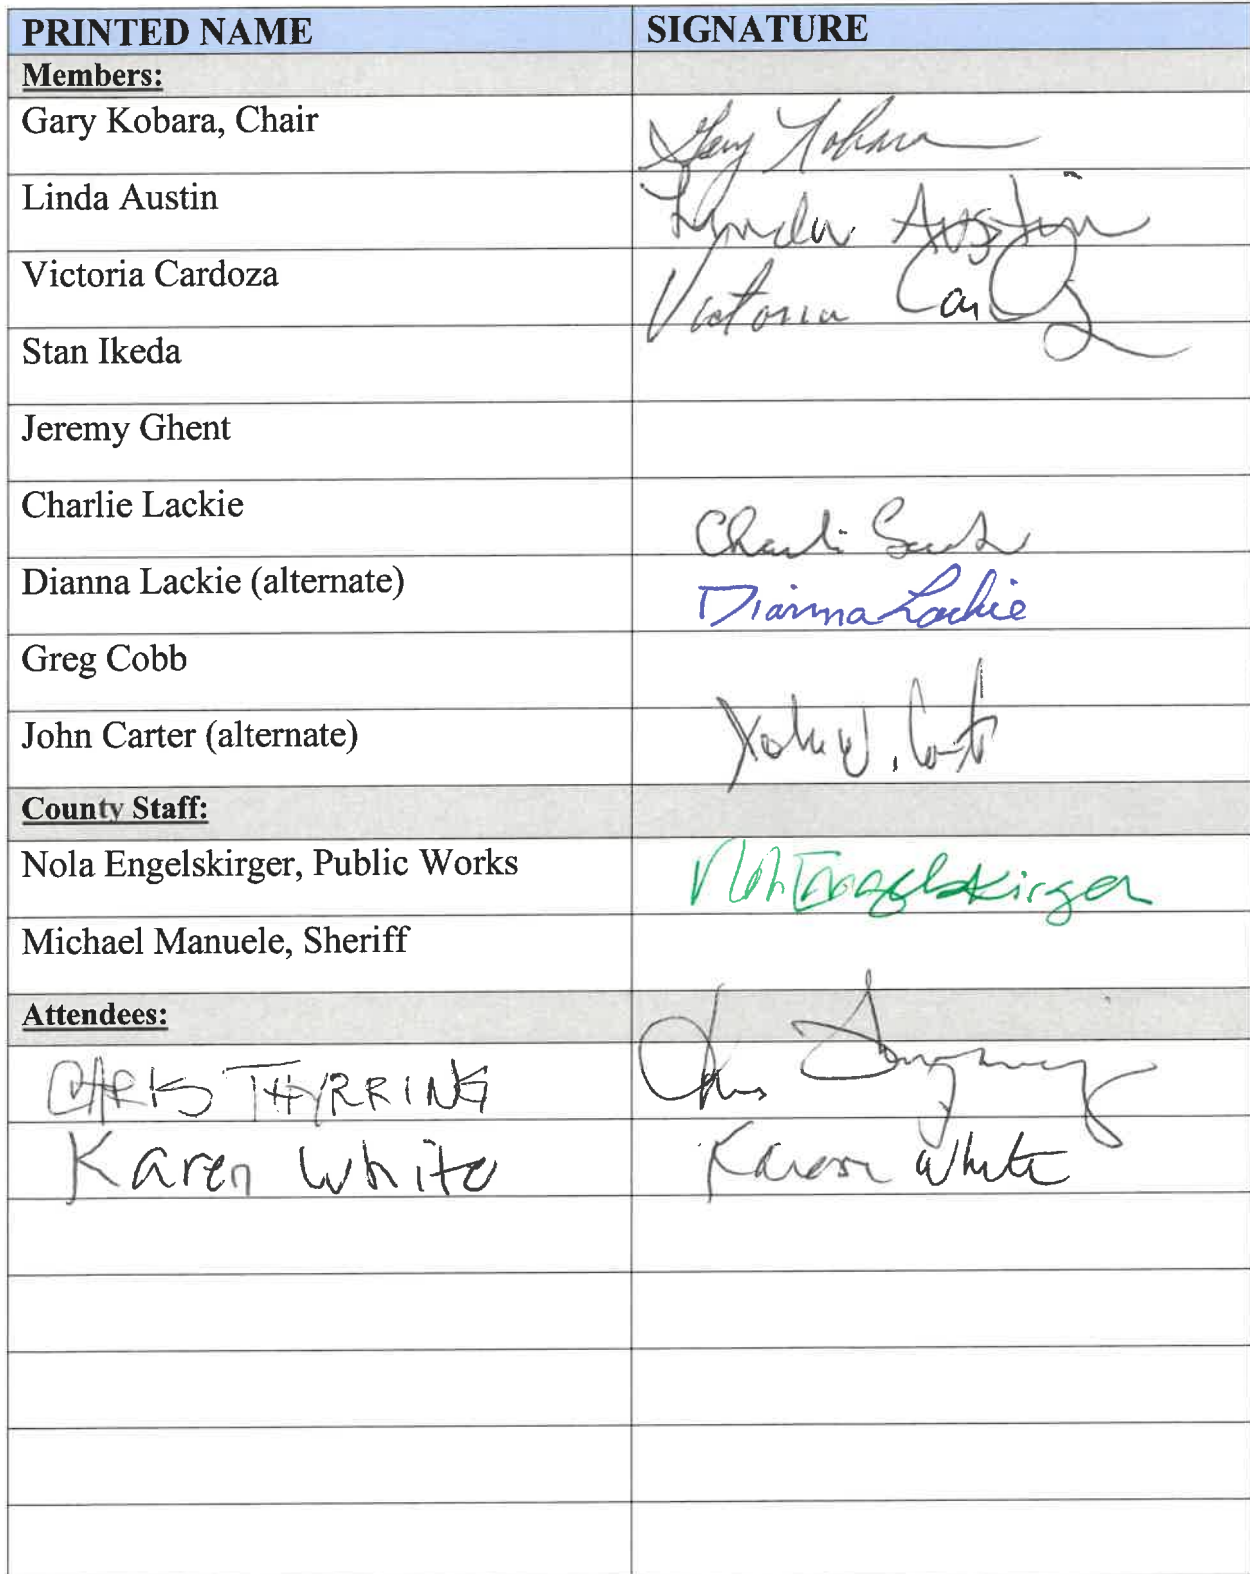 PRINTED NAME SIGNATURE
Members:
Gary Kobara, Chair Gary Kobara
Linda Austin Lynda Austin
Victoria Cardoza Victoria
Stan Ikeda
Jeremy Ghent
Charlie Lackie Charlie
Dianna Lackie (alternate) Dianna Lackie
Greg Cobb
John Carter (alternate) John W. Carter
County Staff:
Nola Engelskirger, Public Works Nola Engelskirger
Michael Manuele, Sheriff
Attendees:
CHRIS THYRRING Chris
Karen White Karen White